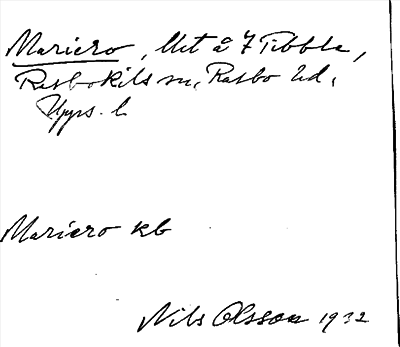 Mariero, Ut å 7 Tibble,
Rasbokils sn, Rasbo hd,
Upps. l
Mariero kb
Nils Olsson 1932